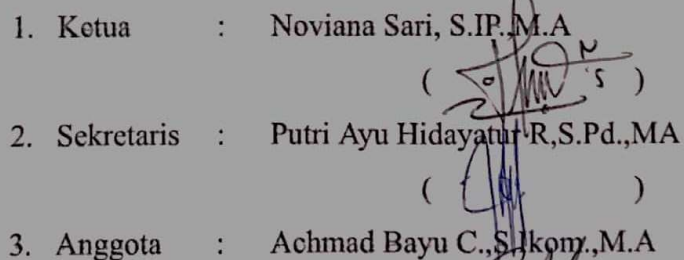 1. Ketua : Noviana Sari, S.IP.,M.A
( )
2. Sekretaris : Putri Ayu Hidayatur R,S.Pd.,MA
( )
3. Anggota : Achmad Bayu C.,S.Ikom.,M.A